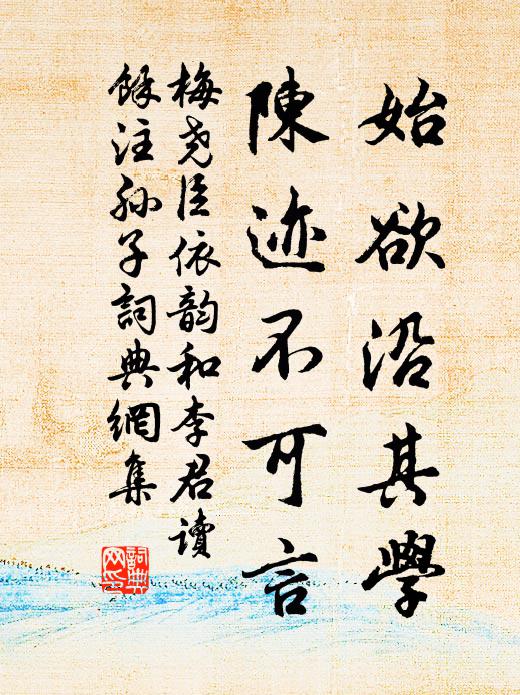 始欲沿其學
陳迹不可言
梅尧臣依韵和李君读
餘注孙子詞典網集
詞典网印